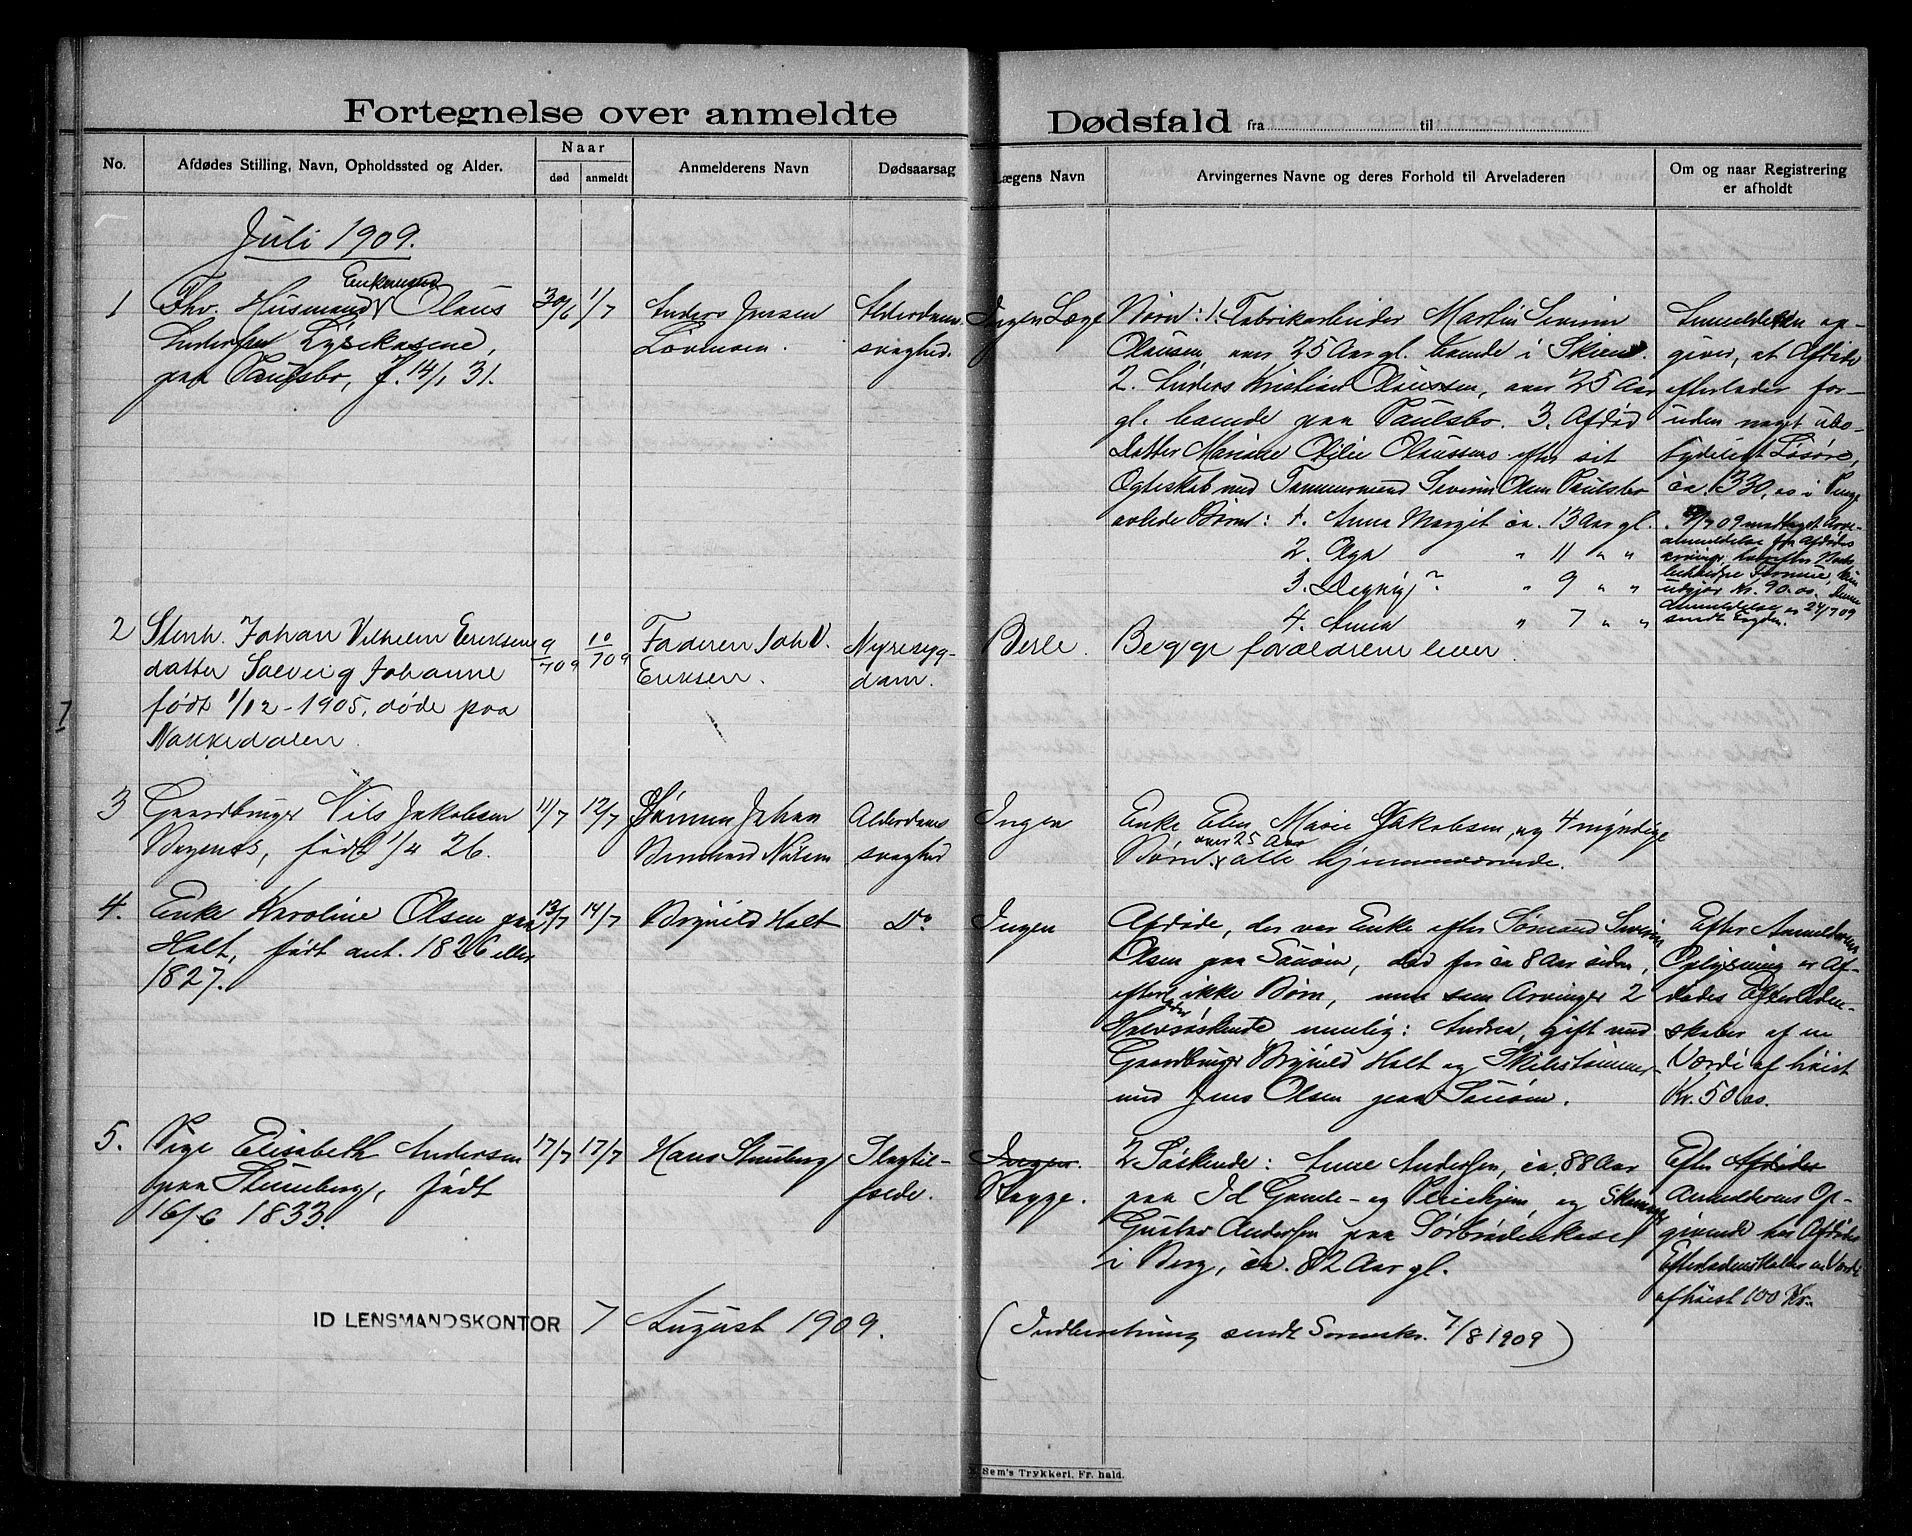 Fortegnelse over anmeldte
Dødsfald fra til
No.
Afdødes Stilling, Navn, Opholdssted og Alder.
Naar
død
anmeldt
Anmelderens Navn
Dødsaarsag
Lægens Navn
Arvingernes Navne og deres Forhold til Arveladeren
Om og naar Registrering
er afholdt
Juli 1909.
1
Enkemand
Fhv. Husmand Olaus
Andersen Lysekasene,
paa Paulsbo, f. 14/1 31.
30/6
1/7
Anders Jensen
Lorensen.
Alderdoms
svaghed.
Ingen Læge
Børn: 1. Fabrikarbeider Martin Severin
Olausen over 25 Aar gl. boende i Skien.
2. Anders Kristian Olaussen, over 25 Aar
gl. boende paa Paulsbo. 3. Afdød
Datter Mariane Olaussens efter sit
Egteskab med Tømmermand Severin Olsen Paulsbo
avlede Børn: 1. Anna Margit ca. 13 Aar gl.
2. Aga " 11 " "
3. Dagny ? " 9 " "
4. Anna " 7 " "
Anmelderen op-
giver, at Afdøde
efterlader for-
uden noget ube-
tydeligt Løsøre,
ca. 330,00 i Penge
7/09 modtaget Arve-
anmeldelse fra Afdødes
Kr. 90.00. Denne
Anmeldelse er 24/7 09
sendt
2
Stenh. Johan Vilhelm Eriksens
datter Solveig Johanne
født 1/12-1905, døde paa
Nakkedalen
9/7 09
10/7 09
Faderen Joh V.
Eriksen.
Nyresyg-
dom.
Berle.
Begge forældrene lever.
3
Gaardbruger Nils Jakobsen
født 1/4 26.
11/7
12/7
Sønnen Johan
Bernhard Nilsen
Alderdoms
svaghed
Ingen
Enke Elen Marie Jakobsen, og 4 myndige
over 25 Aar
Børn alle hjemmeværende.
4.
Enke Karoline Olsen paa
Holt, født ant. 1826 eller
1827.
13/7
14/7
Brynild Holt
Do
Ingen
Afdøde, der var Enke efter Sømand Severin
Olsen paa Sauøen, død for ca 8 Aar siden,
efterlader ikke Børn, men som Arvinger 2
Halvsøskende nemlig: Andrea, gift med
Gaardbruger Brynild Holt og Skibstømmer-
mand Jens Olsen paa Sauøen.
Efter Anmelderens
Oplysning er Af-
dødes Efterladen-
skaber af en
Værdi af høist
Kr. 50.00.
5.
Pige Elisabeth Andersen
paa Stumberg, født
16/6 1833.
17/7
17/7
Hans Stumberg
Slagtil-
fælde.
Ingen.
Bagge.
2 Søskende: Anne Andersen, ca. 88 Aar
paa Id Gamle- og Pleiehjem og
Gustav Andersen paa Sørbrødenkasel
i Berg, ca. 82 Aar gl.
Efter Afdødes
Anmelderens Op-
givende har Afdødes
Efterladenskaber en Værdi
af høist 100 Kr.
ID LENSMANDSKONTOR 7 August 1909.
(Indberetning sendt Sorenskr. 7/8 1909)
Sem's Trykkeri, Fr. hald.